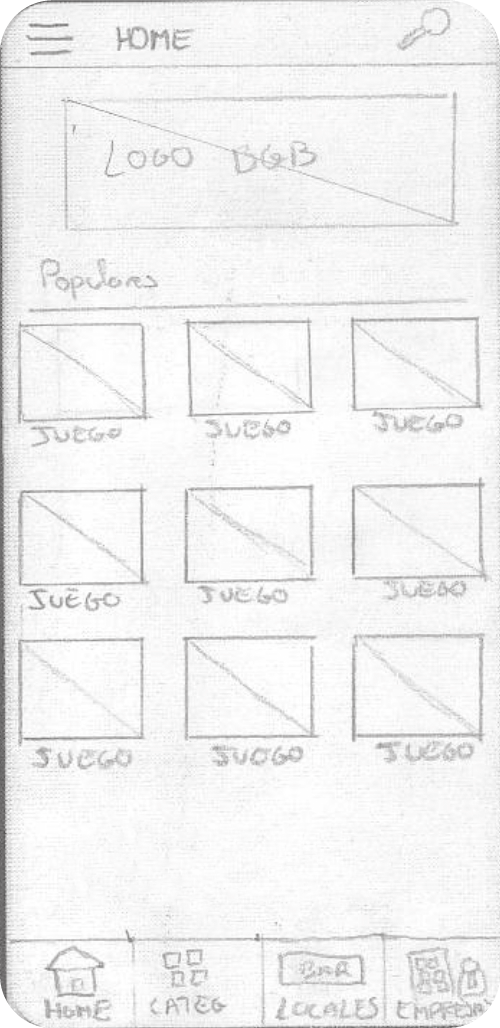 HOME
LOGO BGB
Populares
JUEGO JUEGO JUEGO
JUEGO JUEGO JUEGO
JUEGO JUEGO JUEGO
BAR
HOME CATEG LOCALES EMPRESAS